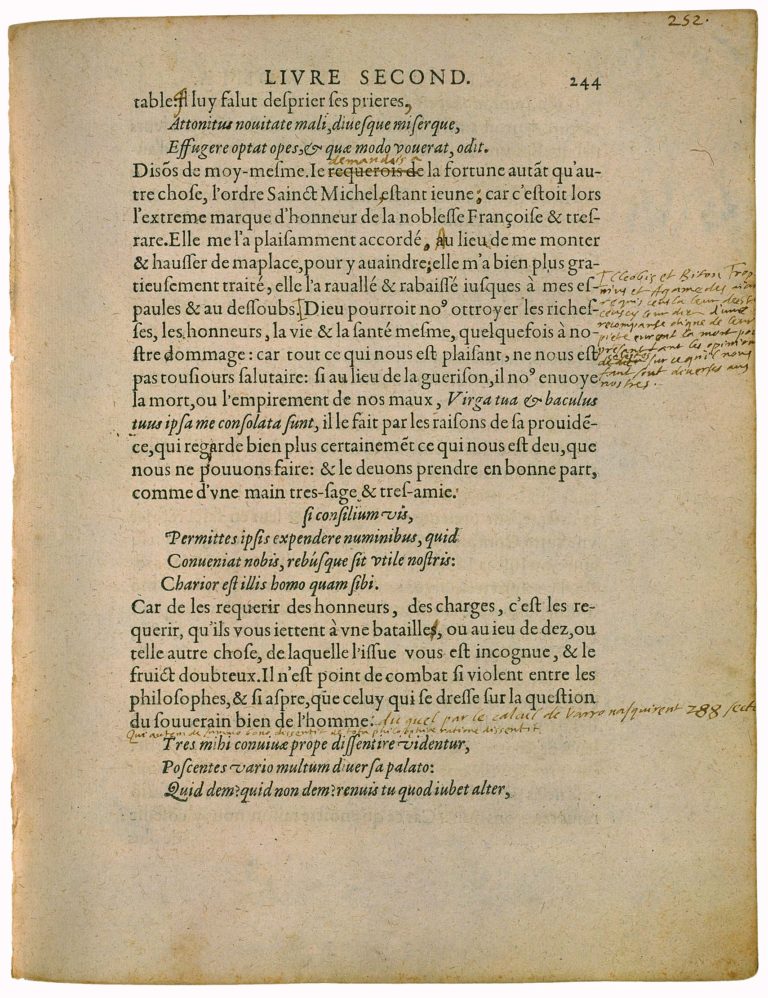 252.
LIVRE SECOND. 244
table. Il luy falut desprier ses prieres,
Attonitus nouitate mali, diuesque miserque,
Effugere optat opes, & quæ modo vouerat, odit.
demandois a
Disõs de moy-mesme. Ie requerois de la fortune autãt qu'au-
tre chose, l'ordre Sainct Michel, estant ieune; car c'estoit lors
l'extreme marque d'honneur de la noblesse Françoise & tres-
rare. Elle me l'a plaisamment accordé, Au lieu de me monter
& hausser de ma place, pour y auaindre; elle m'a bien plus gra-
tieusement traité, elle l'a rauallé & rabaissé iusques à mes es-
paules & au dessoubs. Dieu pourroit no⁹ ottroyer les riches-
ses, les honneurs, la vie & la santé mesme, quelquefois à no-
stre dommage: car tout ce qui nous est plaisant, ne nous est
pas tousiours salutaire: si au lieu de la guerison, il no⁹ enuoye
la mort, ou l'empirement de nos maux, Virga tua & baculus
tuus ipsa me consolata sunt, il le fait par les raisons de sa prouidẽ-
ce, qui regarde bien plus certainemẽt ce qui nous est deu, que
nous ne pouuons faire: & le deuons prendre en bonne part,
comme d'vne main tres-sage & tres-amie.
Cleobis et Biton Trop
nius et Agamedes aiant
requis ceus la leur deesse
ceusci leur dieu d'une
recompanse digne de leur
pieté eurent la mort pour
presant tant les opinions
celestes sur ce qu'il nous
faut sont diverses aus
nostres.
si consilium vis,
Permittes ipsis expendere numinibus, quid
Conueniat nobis, rebúsque sit vtile nostris:
Charior est illis homo quam sibi.
Car de les requerir des honneurs, des charges, c'est les re-
querir, qu'ils vous iettent à vne bataille, ou au ieu de dez, ou
telle autre chose, de laquelle l'issue vous est incognue, & le
fruict doubteux. Il n'est point de combat si violent entre les
philosophes, & si aspre, que celuy qui se dresse sur la question
du souuerain bien de l'homme: du quel par le calcul de Varro nasquirent 288 secte
Qui autem de summo bono dissentit de tota philosophiae ratione dissentit.
Tres mihi conuiuæ prope dissentire videntur,
Poscentes vario multum diuersa palato:
Quid dem? quid non dem? renuis tu quod iubet alter,